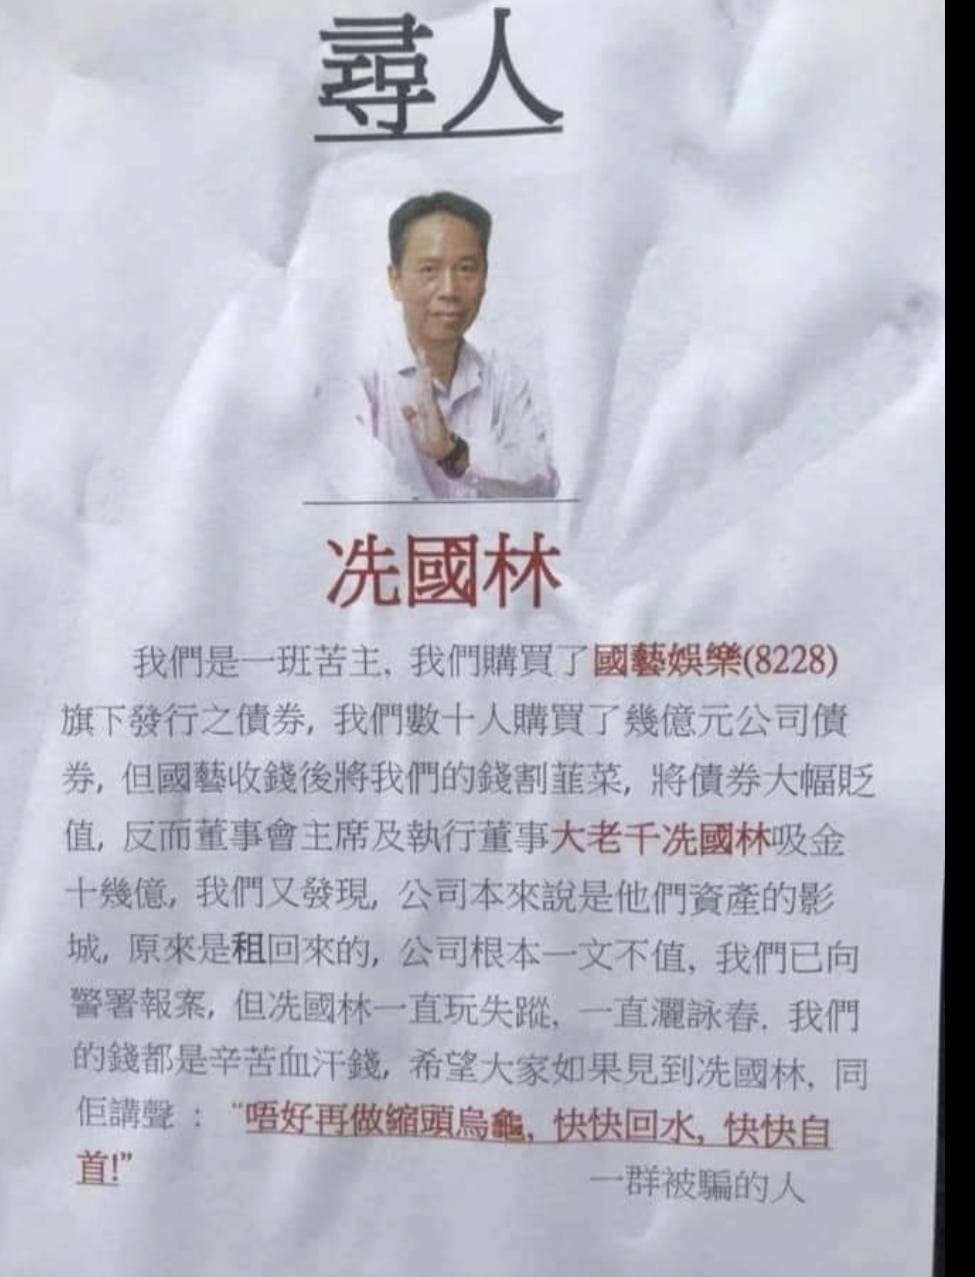 尋人
冼國林
我們是一班苦主, 我們購買了國藝娛樂(8228)
旗下發行之債券, 我們數十人購買了幾億元公司債
券, 但國藝收錢後將我們的錢割韮菜, 將債券大幅貶
值, 反而董事會主席及執行董事大老千冼國林吸金
十幾億, 我們又發現, 公司本來說是他們資產的影
城, 原來是租回來的, 公司根本一文不值, 我們已向
警署報案, 但冼國林一直玩失蹤, 一直灑詠春. 我們
的錢都是辛苦血汗錢, 希望大家如果見到冼國林, 同
佢講聲 : “唔好再做縮頭烏龜, 快快回水, 快快自
首!”
一群被騙的人